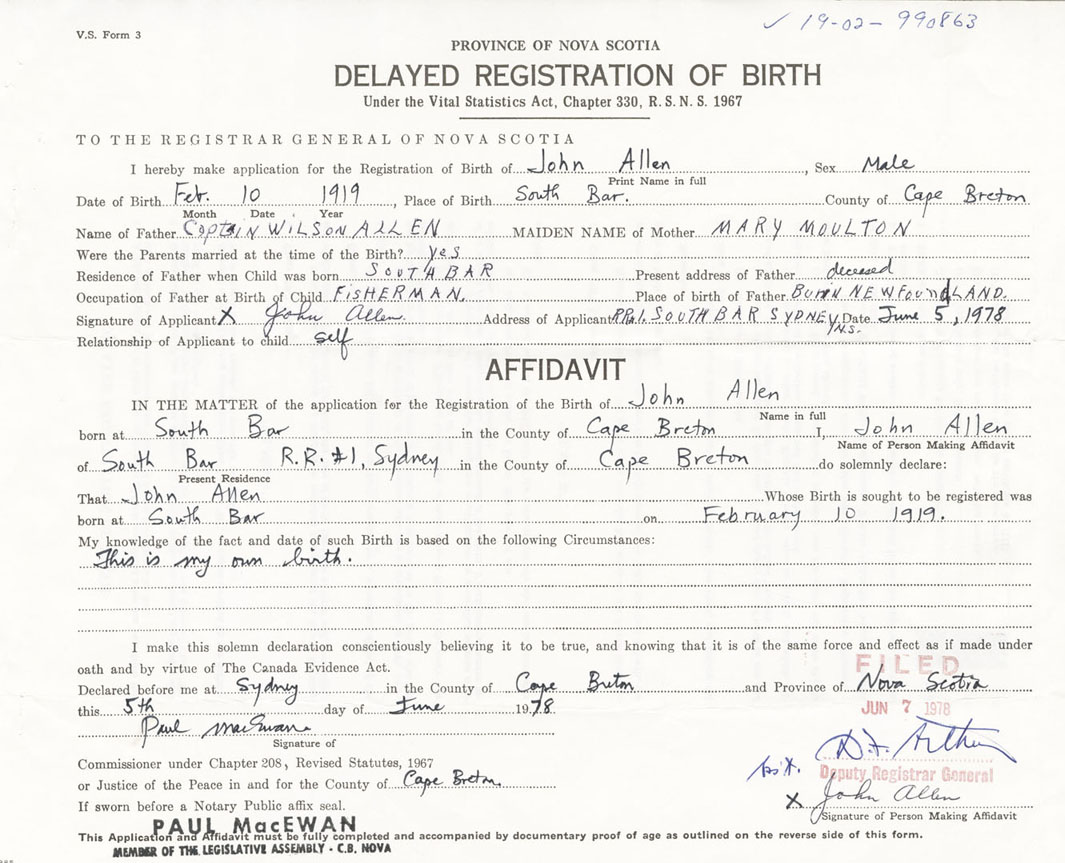 ✓ 19-02-990863
V.S. Form 3
PROVINCE OF NOVA SCOTIA
DELAYED REGISTRATION OF BIRTH
Under the Vital Statistics Act, Chapter 330, R.S.N.S. 1967
TO THE REGISTRAR GENERAL OF NOVA SCOTIA
I hereby make application for the Registration of Birth of John Allen, Sex Male
Print Name in full
Date of Birth Feb. 10 1919, Place of Birth South Bar. County of Cape Breton
Month Date Year
Name of Father CAPTAIN WILSON ALLEN MAIDEN NAME of Mother MARY MOULTON
Were the Parents married at the time of the Birth? yes
Residence of Father when Child was born SOUTH BAR Present address of Father deceased
Occupation of Father at Birth of Child FISHERMAN. Place of birth of Father BURIN NEWFOUNdLAND.
Signature of Applicant X John Allen. Address of Applicant RR1. SOUTH BAR SYDNEY N.S. Date June 5, 1978
Relationship of Applicant to child self
AFFIDAVIT
IN THE MATTER of the application for the Registration of the Birth of John Allen
Name in full
born at South Bar in the County of Cape Breton I, John Allen
Name of Person Making Affidavit
of South Bar R.R. #1, Sydney in the County of Cape Breton do solemnly declare:
Present Residence
That John Allen Whose Birth is sought to be registered was
born at South Bar on February 10 1919.
My knowledge of the fact and date of such Birth is based on the following Circumstances:
This is my own birth.
I make this solemn declaration conscientiously believing it to be true, and knowing that it is of the same force and effect as if made under
oath and by virtue of The Canada Evidence Act.
FILED
Declared before me at Sydney in the County of Cape Breton and Province of Nova Scotia
this 5th day of June 1978
JUN 7 1978
Paul MacEwan
Signature of
Commissioner under Chapter 208, Revised Statutes, 1967
Deputy Registrar General
or Justice of the Peace in and for the County of Cape Breton
X John Allen
If sworn before a Notary Public affix seal.
Signature of Person Making Affidavit
PAUL MacEWAN
This Application and Affidavit must be fully completed and accompanied by documentary proof of age as outlined on the reverse side of this form.
MEMBER OF THE LEGISLATIVE ASSEMBLY - C.B. NOVA